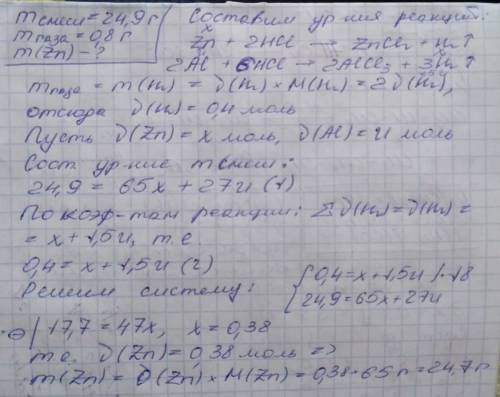 m смеси = 24,9 г
m газа = 0,8 г
m(Zn) - ?
Составим ур-ния реакций:
x
Zn + 2HCl → ZnCl₂ + H₂↑
2Al + 6HCl → 2AlCl₃ + 3H₂↑
m газа = m(H₂) = ϑ(H₂) × M(H₂) = 2ϑ(H₂),
отсюда ϑ(H₂) = 0,4 моль
Пусть ϑ(Zn) = x моль, ϑ(Al) = u моль
Сост. ур-ние m смеси:
24,9 = 65x + 27u (1)
По коэф-там реакции: Σϑ(H₂) = ϑ(H₂) =
= x + 1,5u, т.е.
0,4 = x + 1,5u (2)
Решаем систему: { 0,4 = x + 1,5u | · 18
24,9 = 65x + 27u
⊖ | 17,7 = 47x, x = 0,38
т.е. ϑ(Zn) = 0,38 моль =>
m(Zn) = ϑ(Zn) × M(Zn) = 0,38 · 65 г = 24,7 г